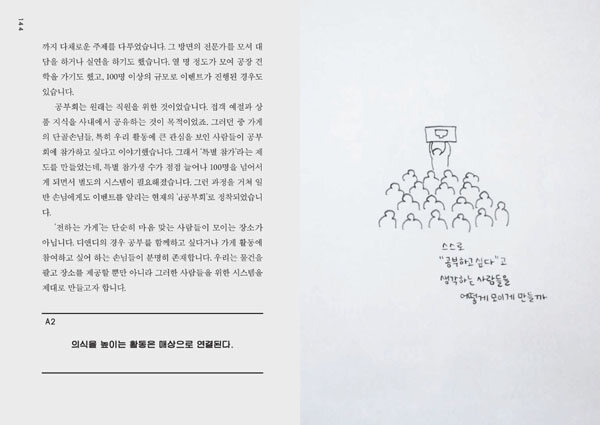 144
까지 다채로운 주제를 다루었습니다. 그 방면의 전문가를 모셔 대
담을 하거나 실연을 하기도 했습니다. 열 명 정도가 모여 공장 견
학을 가기도 했고, 100명 이상의 규모로 이벤트가 진행된 경우도
있습니다.
공부회는 원래는 직원을 위한 것이었습니다. 접객 예절과 상
품 지식을 사내에서 공유하는 것이 목적이었죠. 그러던 중 가게
의 단골손님들, 특히 우리 활동에 큰 관심을 보인 사람들이 공부
회에 참가하고 싶다고 이야기했습니다. 그래서 ‘특별 참가’라는 제
도를 만들었는데, 특별 참가생 수가 점점 늘어나 100명을 넘어서
게 되면서 별도의 시스템이 필요해졌습니다. 그런 과정을 거쳐 일
반 손님에게도 이벤트를 알리는 현재의 ‘d공부회’로 정착되었습니
다.
‘전하는 가게’는 단순히 마음 맞는 사람들이 모이는 장소가
아닙니다. 디앤디의 경우 공부를 함께하고 싶다거나 가게 활동에
참여하고 싶어 하는 손님들이 분명히 존재합니다. 우리는 물건을
팔고 장소를 제공할 뿐만 아니라 그러한 사람들을 위한 시스템을
제대로 만들고자 합니다.
A2
의식을 높이는 활동은 매상으로 연결된다.
스스로
“공부하고 싶다”고
생각하는 사람들을
어떻게 모이게 만들까